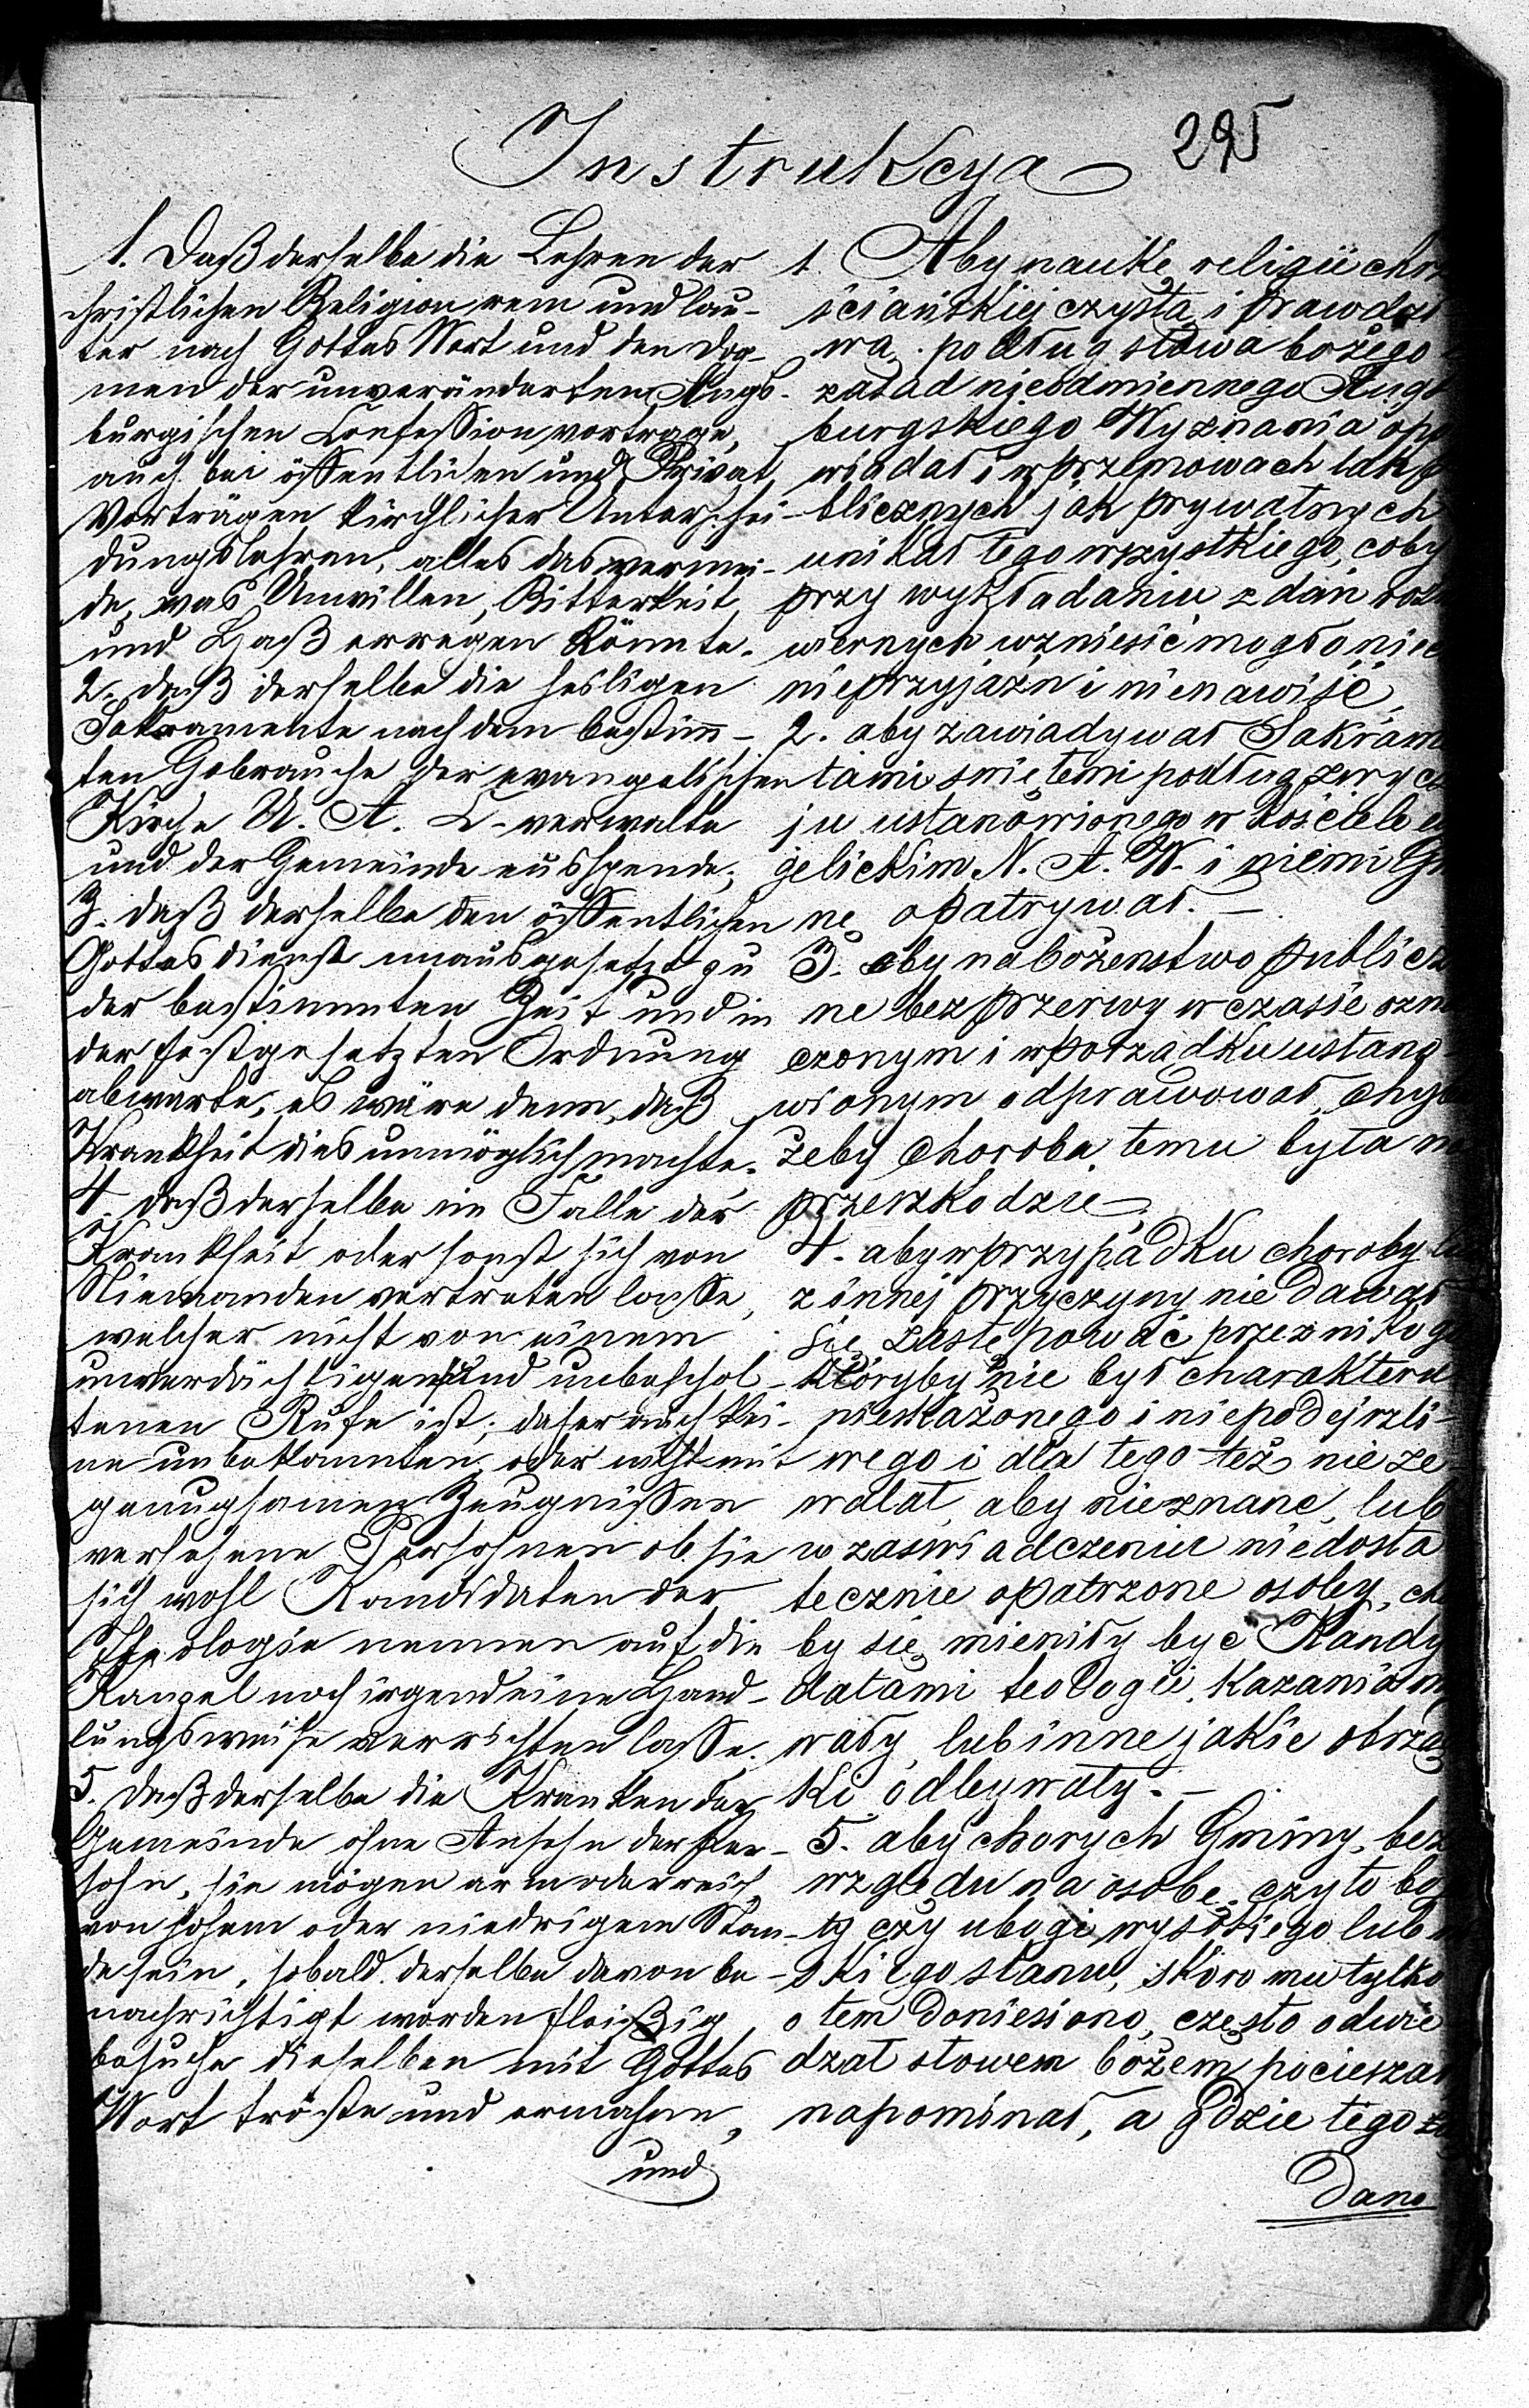 295
Instrukcya
1. Daß derselbe die Lehren der
christlichen Religion rein und lau-
ter nach Gottes Wort und den Dog-
men der unveränderten Augs-
burgischen Confession vortrage,
auch bei öffentlichen und Privat
Vorträgen kirchlicher Unterschei-
dungslehren, alles das vermei-
de, was Unwillen, Bitterkeit,
und Haß erregen könnte.
2. daß derselbe die heiligen
Sakramente nach dem bestimm-
ten Gebrauche der evangelischen
Kirche U. A. C. verwalte
und der Gemeinde ausspende;
3. daß derselbe den öffentlichen
Gottesdienst unausgesetzt zu
der bestimmten Zeit und in
der festgesetzten Ordnung
abwarte, es wäre denn, daß
Krankheit dies unmöglich machte.
4. daß derselbe im Falle der
Krankheit oder sonst sich von
Niemanden vertreten lasse,
welcher nicht von einem
unverdächtigen und unbeschol-
tenen Rufe ist; daher auch kei-
ne unbekannten oder nicht mit
genugsamen Zeugnissen
versehene Persohnen ob sie
sich wohl Kandidaten der
Theologie nennen auf die
Kanzel noch irgend eine Hand-
lungsweise verrichten lasse.
5. daß derselbe die Kranken der
Gemeinde ohne Ansehn der Per-
sohn, sie mögen arm oder reich,
von hohem oder niedrigem Stan-
de sein, sobald derselbe davon be-
nachrichtigt worden fleißig,
besuche dieselben mit Gottes
Wort tröste und ermahne,
und
1. Aby naukę religii chrz
ściańskiej czystą i prawdzi
wą podług słowa bożego
zasad nieodmiennego Augs
burgskiego Wyznania opo
wiadał i w przemowach tak p
blicznych jak prywatnych
unikał tego wszystkiego, coby
przy wykładaniu zdań różn
wiernych wzniesić mogło niec
nieprzyjaźń i nienawiść,
2. aby zawiadywał Sakrame
tami świętemi podług zwycza
ju ustanowionego w kościele ew
gelickim N. A. W. i niemi Gm
nę opatrywał. —
3. aby nabożenstwo publicz
ne bez przerwy w czasie ozna
czonym i w porządku ustano-
wionym odprawował, chyba
żeby choroba temu była na
przeszkodzie,
4. aby w przypadku choroby lu
z innej przyczyny nie dawał
się zastępować przez nikogo
któryby nie był charakteru
nieskażonego i niepodejrzli-
wego i dla tego też nie ze
walał, aby nieznane, lub
w zaświadczenia niedosta
tecznie opatrzone osoby, cho
by się mieniły być Kandy
datami teologii, kazania m
wały, lub inne jakie obrzą
ki odbywały. —
5. aby chorych Gminy, bez
względu na osobę, czy to bo
ty czy ubogi, wysokiego lub n
skiego stanu, skoro mu tylko
o tem doniesiono, często odwie
dzał słowem bożem pocieszał
napominał, a gdzie tego żą
dano